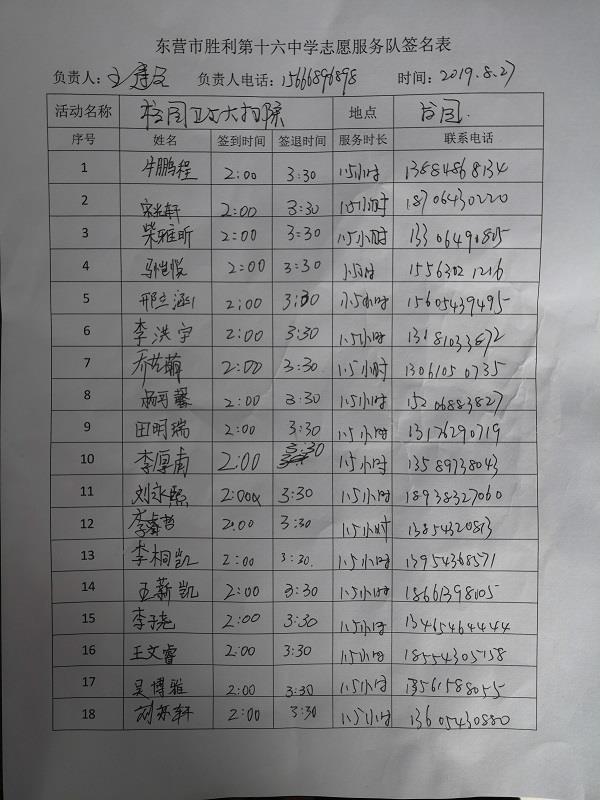 东营市胜利第十六中学志愿服务队签名表
负责人：王建民 负责人电话：15666896898 时间：2019.8.27
活动名称 校园卫生大扫除 地点 校园.
序号 姓名 签到时间 签退时间 服务时长 联系电话
1 牛鹏程 2:00 3:30 1.5小时 13884868134
2 宋光轩 2:00 3:30 1.5小时 18706430220
3 柴雅昕 2:00 3:30 1.5小时 13306490805
4 马恺悦 2:00 3:30 1.5小时 1556302 1216
5 邢立涵 2:00 3:30 1.5小时 15605439495
6 李洪宇 2:00 3:30 1.5小时 13181033892
7 乔萌 2:00 3:30 1.5小时 1306105 0735
8 2:00 3:30 1.5小时 15206883827
9 田明瑞 2:00 3:30 1.5小时 13176290719
10 李厚甫 2:00 3:30 1.5小时 13589738043
11 刘永熙 2:00 3:30 1.5小时 18938327060
12 李睿哲 2:00 3:30 1.5小时 13854320813
13 李桐凯 2:00 3:30. 1.5小时 13954368571
14 王薪凯 2:00 3:30 1.5小时 18661398105
15 李子尧 2:00 3:30 1.5小时 13465464444
16 王文睿 2:00 3:30 1.5小时 18554305158
17 吴博雅 2:00 3:30 1.5小时 13561588055
18 刘苏轩 2:00 3:30 1.5小时 13605430880